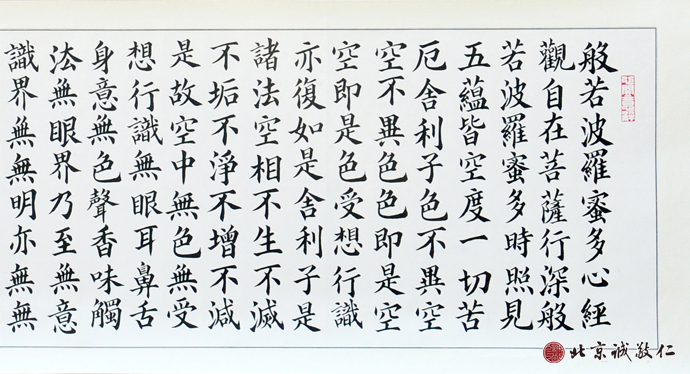 般若波羅蜜多心經
觀自在菩薩行深般
若波羅蜜多時照見
五蘊皆空度一切苦
厄舍利子色不異空
空不異色色即是空
空即是色受想行識
亦復如是舍利子是
諸法空相不生不滅
不垢不淨不增不減
是故空中無色無受
想行識無眼耳鼻舌
身意無色聲香味觸
法無眼界乃至無意
識界無無明亦無無
北京誠敬仁